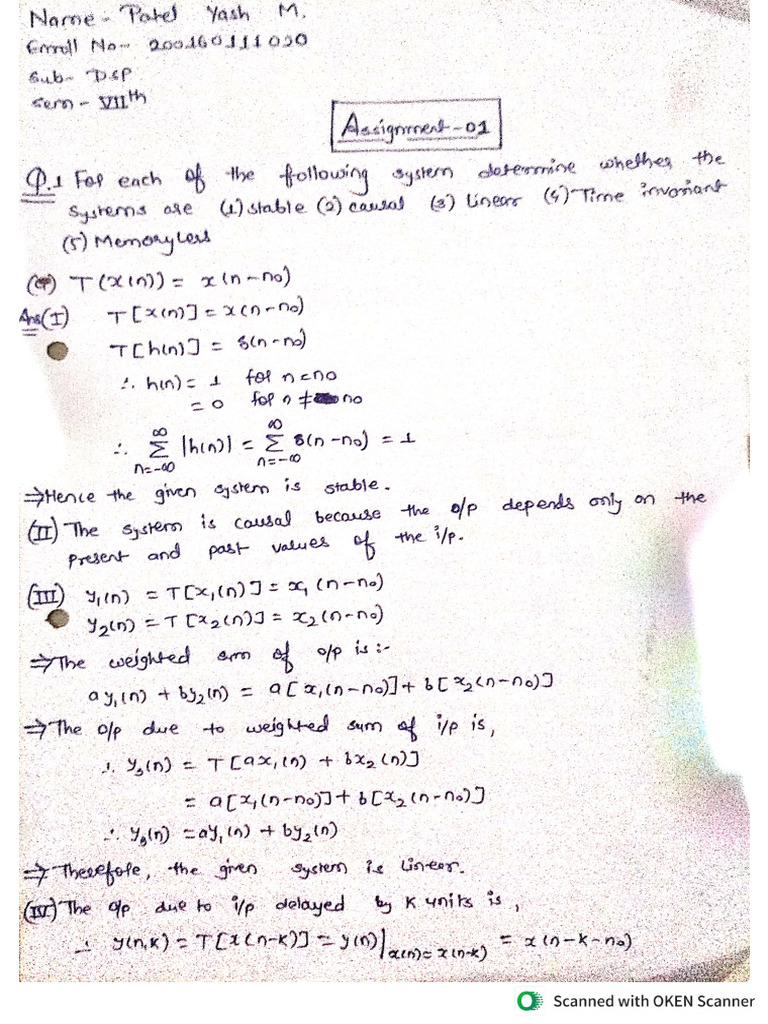 Name - Patel Yash M.
Enroll No- 200160111090
Sub- DSP
Sem - VIIth
Assignment-01
Q.1 For each of the following system determine whether the
systems are (1) stable (2) causal (3) Linear (4) Time invariant
(5) Memoryless
T(x(n)) = x(n-n0)
Ans (I) T[x(n)] = x(n-n0)
T[h(n)] = δ(n-n0)
∴ h(n) = 1 for n=n0
= 0 for n ≠ n0
∴ ∞Σn=-∞ |h(n)| = ∞Σn=-∞ δ(n-n0) = 1
⇒ Hence the given system is stable.
(II) The system is causal because the o/p depends only on the
present and past values of the i/p.
(III) y1(n) = T[x1(n)] = x1(n-n0)
y2(n) = T[x2(n)] = x2(n-n0)
⇒ The weighted sum of o/p is :-
ay1(n) + by2(n) = a[x1(n-n0)] + b[x2(n-n0)]
⇒ The o/p due to weighted sum of i/p is,
∴ y3(n) = T[ax1(n) + bx2(n)]
= a[x1(n-n0)] + b[x2(n-n0)]
∴ y3(n) = ay1(n) + by2(n)
⇒ Therefore, the given system is Linear.
(IV) The o/p due to i/p delayed by K units is,
∴ y(n,k) = T[x(n-k)] = y(n)|x(n)=x(n-k) = x(n-k-n0)
Scanned with OKEN Scanner